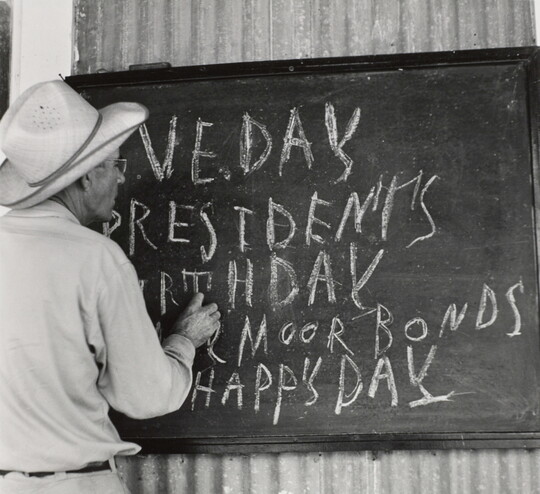 V.E. DAY
PRESIDENT'S
IRTHDAY
MOOR BONDS
HAPP'S DAY